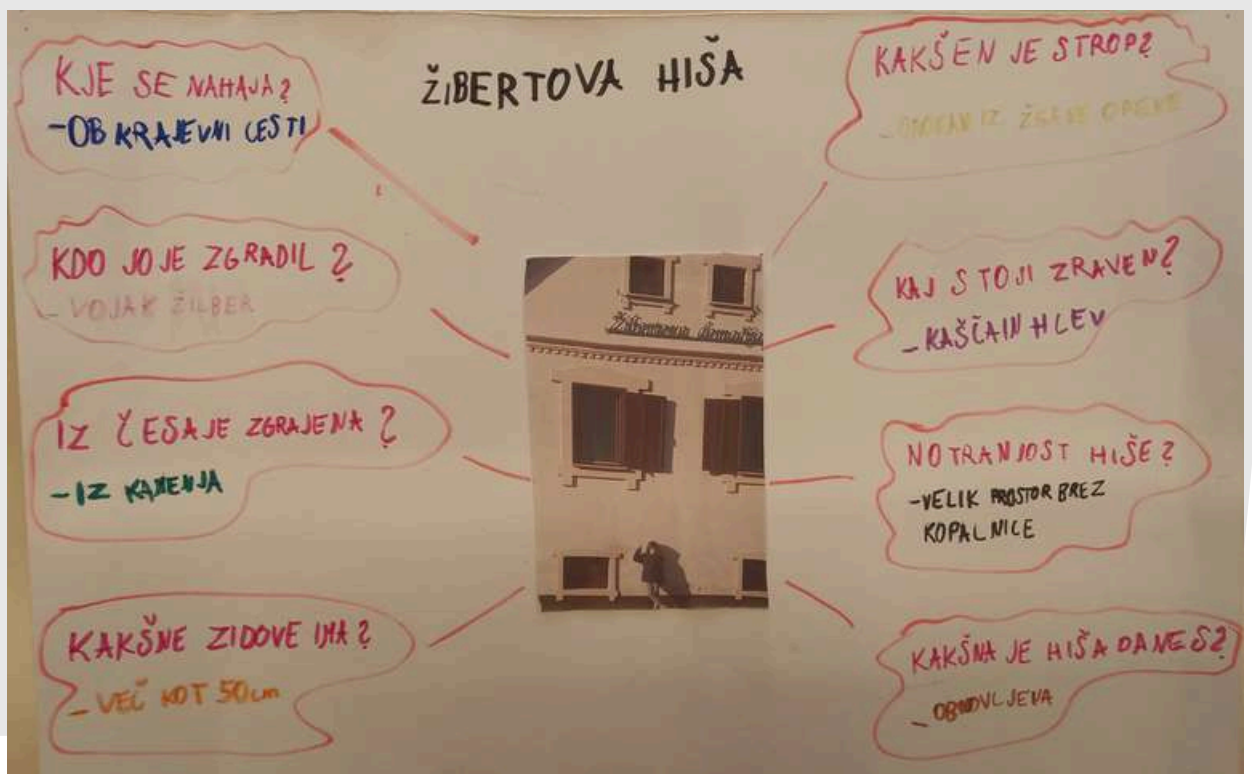 ŽIBERTOVA HIŠA
KJE SE NAHAJA?
-OB KRAJEVNI CESTI
KDO JO JE ZGRADIL?
- VOJAK ŽILBER
IZ ČESAJE ZGRAJENA?
-IZ KAMENJA
KAKŠNE ZIDOVE IMA?
- VEČ KOT 50cm
Žibertova domačija
KAKŠEN JE STROP?
- OBOKAN IZ ŽGANE OPEKE
KAJ STOJI ZRAVEN?
- KAŠČA IN HLEV
NOTRANJOST HIŠE?
-VELIK PROSTOR BREZ
KOPALNICE
KAKŠNA JE HIŠA DANES?
- OBNOVLJENA